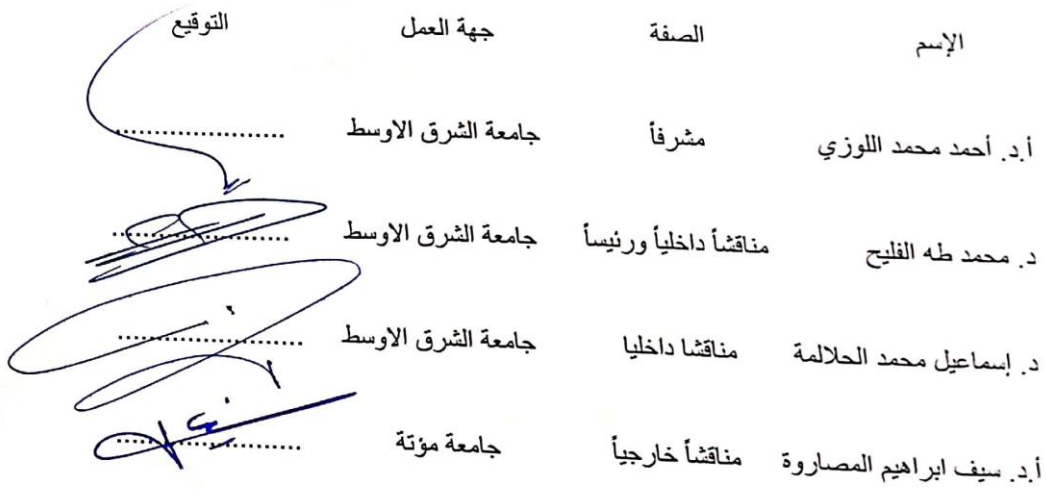 الإسم الصفة جهة العمل التوقيع
أ.د. أحمد محمد اللوزي مشرفاً جامعة الشرق الاوسط ..................
د. محمد طه الفليح مناقشاً داخلياً ورئيساً جامعة الشرق الاوسط ..................
د. إسماعيل محمد الحلالمة مناقشا داخليا جامعة الشرق الاوسط ..................
أ.د. سيف ابراهيم المصاروة مناقشاً خارجياً جامعة مؤتة ..................